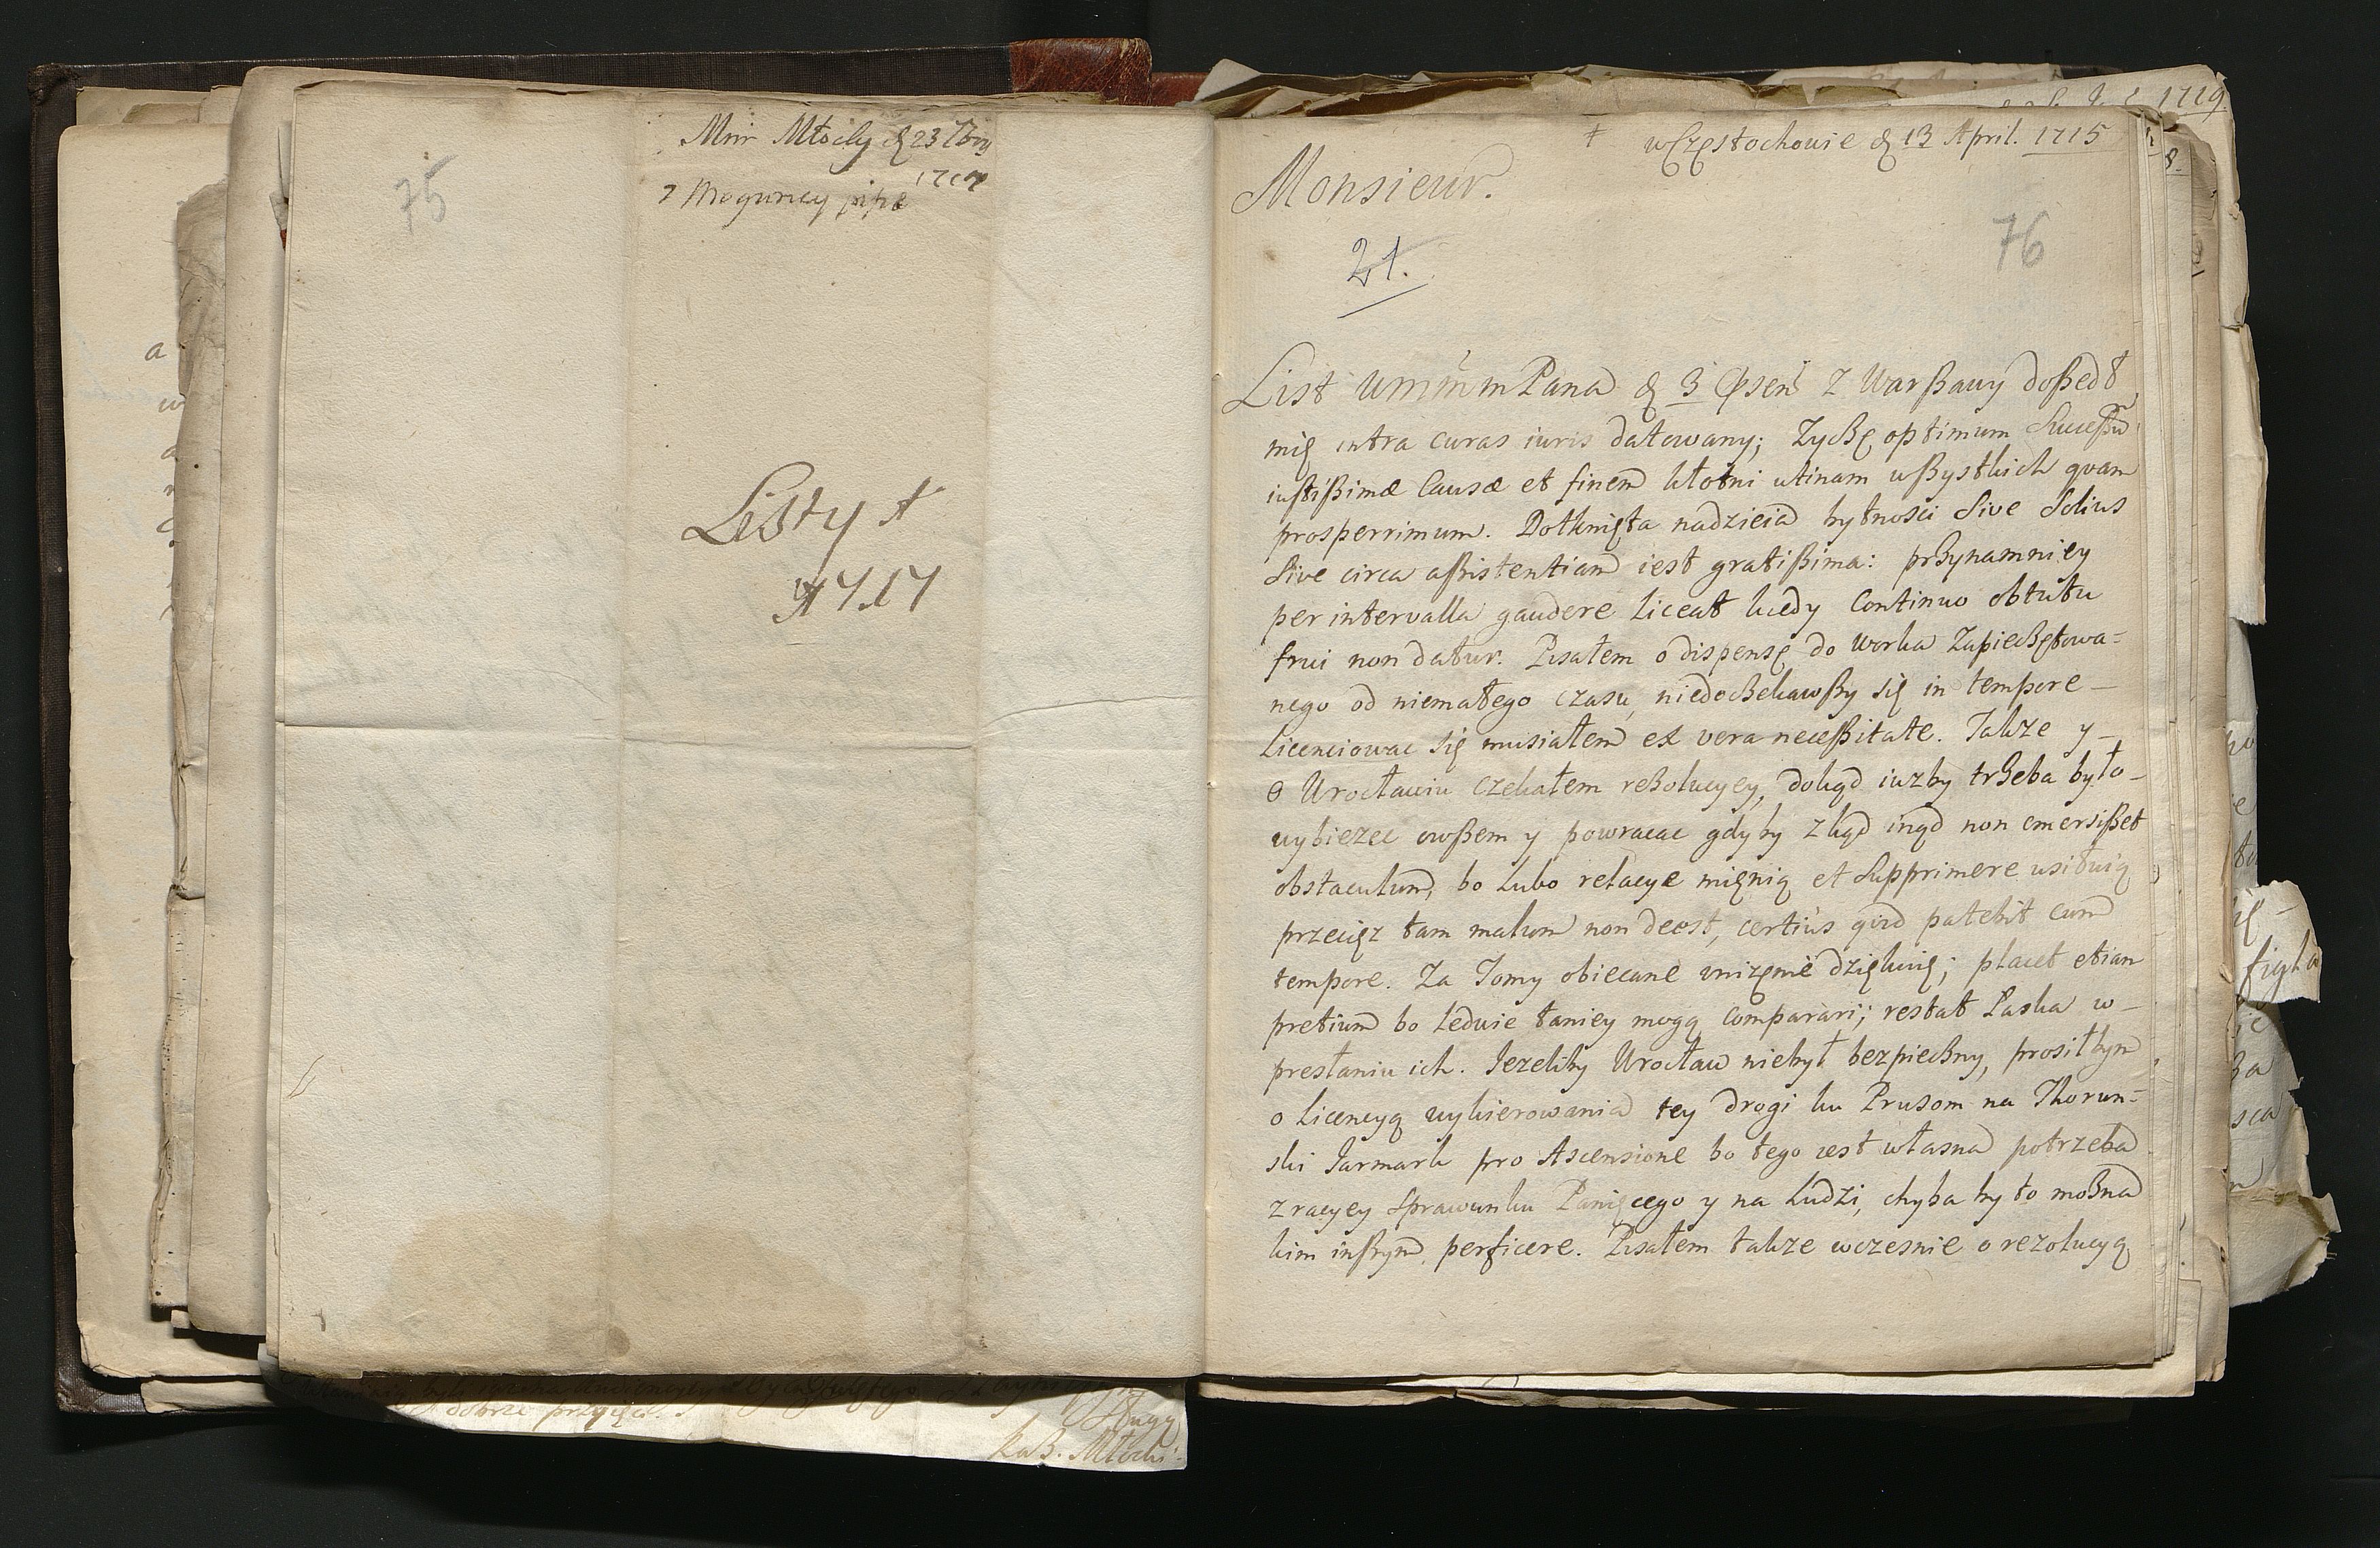 75
Mnir Młocky d 23 7bris
1717
z Mogunciy pisze
Listy A
1717
+ w Częstochowie d 13 April. 1715
Monsieur.
76
21.
List WmmmPana d 3 Præsen z Warßawy doßedł
mię intra curas iuris datowany; Zyczę optimum Succeßũ
iustißimæ Causæ et finem kłotni utinam wßystkich quam
prosperrimum. Dotknięta nadzieia bytności Sive Solius
Sive circa aßistentiam iest gratißima: przynamniey
per intervalla gaudere liceat kiedy Continuo obtutu
frui non datur. Pisałem o dispensę do Worka Zapieczętowa=
nego od niemałego czasu, niedoczekawßy się in tempore
Licenciowac się musiałem ex vera neceßitate. Takze y
o Wrocławiu czekałem rezolucyey, dokąd iuzby trzeba było
wybiezec owßem y powracac gdyby zkąd inąd non emersißet
obstaculum, bo lubo relacye mięnią et Supprimere usiłuią
przecięz tam malum non deest, certiùs quid patebit cum
tempore. Za Tomy obiecane unizęnie dziękuię; placet etiam
pretium bo ledwie taniey mogą comparari; restat Laska w
presłaniu ich. Iezeliby Wrocław niebył bezpieczny, prosiłbym
o licencyą wykierowania tey drogi ku Prusom na Thorun=
ski Iarmark pro Ascensione bo tego iest własna potrzeba
z racyey Sprawunku Panięcego y na Ludzi, chyba by to mozna
kim inßym perficere. Pisałem takze wczesnie o rezolucyą
dobrze przyięci.
Sługą
Kaz. Młocki
1719
8.